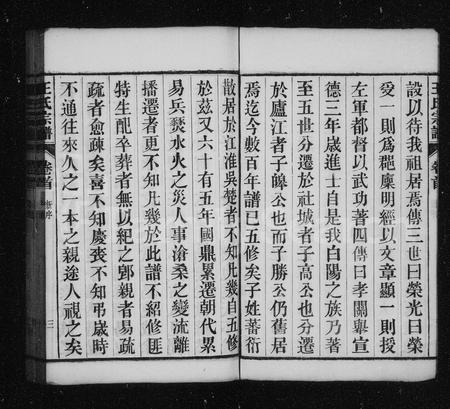 王氏宗譜
卷首
設以待我祖居焉傳三世曰榮光曰榮
受一則為穆廩明經以文章顯一則授
左軍都督以武功著四傳曰孝關舉宣
德三年歲進士自是我白陽之族乃著
至五世分遷於社城者子高公也分遷
於廬江者子皞公也而子勝公仍舊居
焉迄今數百年譜已五修矣子姓蕃衍
散居於江淮吳楚者不知凡幾自五修
於茲又六十有五年國鼎累遷朝代累
易兵燹水火之災人事滄桑之變流離
播遷者更不知凡幾於此譜不紹修匪
特生配卒葬者無以紀之郭親者易疏
疏者愈疎矣喜不知慶喪不知弔歲時
不通往來久之一本之親途人視之矣
王氏宗譜
卷首
新序
三